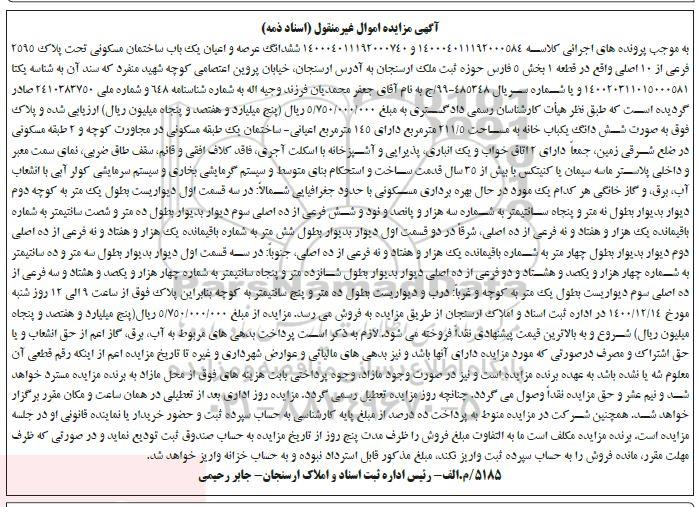 آگهی مزایده اموال غیرمنقول (اسناد ذمه)
به موجب پرونده های اجرائی کلاسه ۱۴۰۰۰۴۰۱۱۱۹۲۰۰۰۵۸۴ و ۱۴۰۰۰۴۰۱۱۱۹۲۰۰۰۷۴۰ ششدانگ عرصه و اعیان یک باب ساختمان مسکونی تحت پلاک ۲۵۹۵
فرعی از ۱۰ اصلی واقع در قطعه ۱ بخش ۵ فارس حوزه ثبت ملک ارسنجان به آدرس ارسنجان، خیابان پروین اعتصامی کوچه شهید منفرد که سند آن به شناسه یکتا
۱۴۰۰۲۰۳۱۱۰۱۵۰۰۰۵۸۱ و با شماره سریال ۴۸۵۳۴۸-۹۹/ج به نام آقای جعفر محمدیان فرزند وجیه اله به شماره شناسنامه ۶۴۸ و شماره ملی ۲۴۱۰۳۸۳۷۵۰ صادر
گردیده است که طبق نظر هیأت کارشناسان رسمی دادگستری به مبلغ ۵/۷۵۰/۰۰۰/۰۰۰ ریال (پنج میلیارد و هفتصد و پنجاه میلیون ریال) ارزیابی شده و پلاک
فوق به صورت شش دانگ یکباب خانه به مساحت ۲۱۱/۵ مترمربع دارای ۱۴۵ مترمربع اعیانی- ساختمان یک طبقه مسکونی در مجاورت کوچه و ۲ طبقه مسکونی
در ضلع شرقی زمین، جمعاً دارای ۲ اتاق خواب و یک انباری، پذیرایی و آشپزخانه با اسکلت آجری، فاقد کلاف افقی و قائم، سقف طاق ضربی، نمای سمت معبر
و داخلی پلاستر ماسه سیمان با کنیتکس با بیش از ۲۵ سال قدمت ساخت و استحکام بنای متوسط و سیستم گرمایشی بخاری و سیستم سرمایشی کولر آبی با انشعاب
آب، برق، و گاز خانگی هر کدام یک مورد در حال بهره برداری مسکونی با حدود جغرافیایی شمالاً: در سه قسمت اول دیواریست بطول یک متر به کوچه دوم
دیوار بدیوار بطول نه متر و پنجاه سانتیمتر به شماره سه هزار و پانصد و نود و شش فرعی از ده اصلی سوم دیوار بدیوار بطول ده متر و شصت سانتیمتر به شماره
باقیمانده یک هزار و هفتاد و نه فرعی از ده اصلی، شرقاً در دو قسمت اول دیوار بدیوار بطول شش متر به شماره باقیمانده یک هزار و هفتاد و نه فرعی از ده اصلی
دوم دیوار بدیوار بطول چهار متر به شماره باقیمانده یک هزار و هفتاد و نه فرعی از ده اصلی، جنوباً: در سه قسمت اول دیوار بدیوار بطول سه متر و ده سانتیمتر
به شماره چهار هزار و یکصد و هشتاد و دو فرعی از ده اصلی دوم دیوار بدیوار بطول شانزده متر و پنجاه سانتیمتر به شماره چهار هزار و یکصد و هفتاد و سه فرعی از
ده اصلی سوم دیواریست بطول یک متر به کوچه و غرباً: درب و دیواریست بطول ده متر و پنج سانتیمتر به کوچه بنابراین پلاک فوق از ساعت ۹ الی ۱۲ روز شنبه
مورخ ۱۴۰۰/۱۲/۱۴ در اداره ثبت اسناد و املاک ارسنجان از طریق مزایده به فروش می رسد. مزایده از مبلغ ۵/۷۵۰/۰۰۰/۰۰۰ ریال(پنج میلیارد و هفتصد و پنجاه
میلیون ریال) شروع و به بالاترین قیمت پیشنهادی نقداً فروخته می شود. لازم به ذکر است پرداخت بدهی های مربوط به آب، برق، گاز اعم از حق انشعاب و یا
حق اشتراک و مصرف درصورتی که مورد مزایده دارای آنها باشد و نیز بدهی های مالیاتی و عوارض شهرداری و غیره تا تاریخ مزایده اعم از اینکه رقم قطعی آن
معلوم شده یا نشده باشد به عهده برنده مزایده است و نیز در صورت وجود مازاد، وجوه پرداختی بابت هزینه های فوق از محل مازاد به برنده مزایده مسترد خواهد
شد و نیم عشر و حق مزایده نقداً وصول می گردد. چنانچه روز مزایده تعطیل رسمی گردد، مزایده روز اداری بعد از تعطیلی در همان ساعت و مکان مقرر برگزار
خواهد شد. همچنین شرکت در مزایده منوط به پرداخت ده درصد از مبلغ پایه کارشناسی به حساب سپرده ثبت و حضور خریدار یا نماینده قانونی او در جلسه
مزایده است. برنده مزایده مکلف است ما به التفاوت مبلغ فروش را ظرف مدت پنج روز از تاریخ مزایده به حساب صندوق ثبت تودیع نماید و در صورتی که ظرف
مهلت مقرر، مانده فروش را به حساب سپرده ثبت واریز نکند، مبلغ مذکور قابل استرداد نبوده و به حساب خزانه واریز خواهد شد.
۵۱۸۵/م.الف- رئیس اداره ثبت اسناد و املاک ارسنجان- جابر رحیمی
ParsNamadData
۰۲۱-۸۸۳۴۹۶۷۰-۵